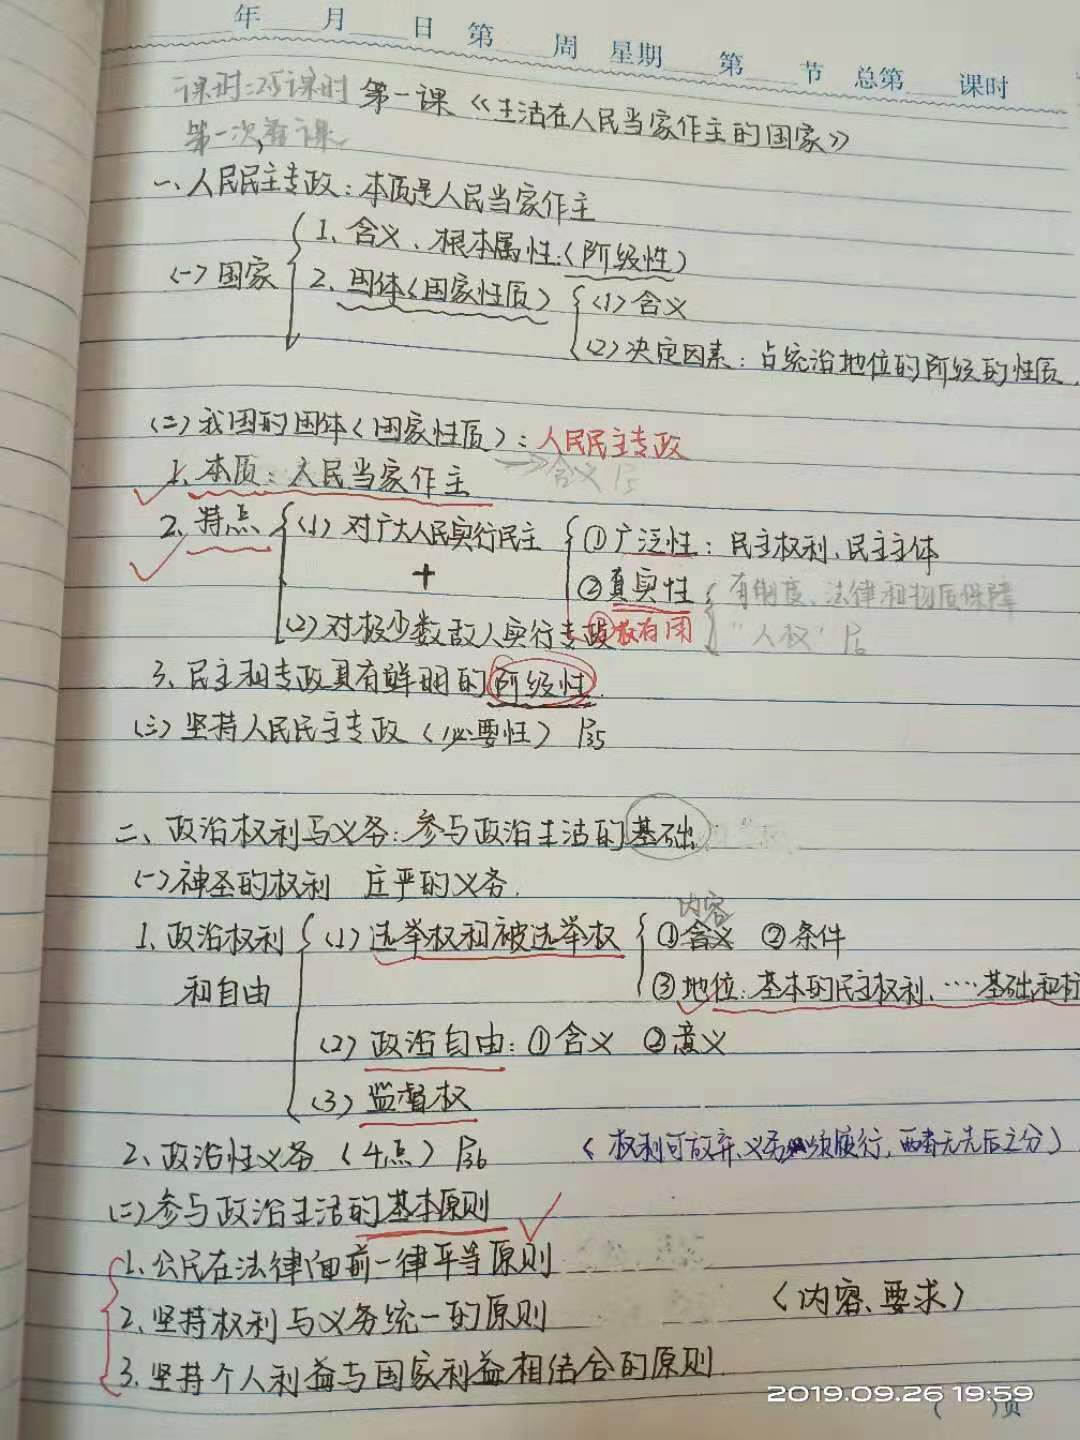 年 月 日 第 周 星期 第 节 总第 课时
课时:2课时 第一课《生活在人民当家作主的国家》
第一次,新课
一、人民民主专政:本质是人民当家作主
(一)国家
1、含义、根本属性:(阶级性)
2、国体(国家性质)
(1)含义
(2)决定因素:占统治地位的阶级的性质.
(二)我国的国体(国家性质):人民民主专政
→含义 P5
1、本质:人民当家作主
2、特点
(1)对广大人民实行民主
①广泛性:民主权利、民主主体
+
②真实性
有制度、法律和物质保障
(2)对极少数敌人实行专政
"人权" P6
3、民主和专政具有鲜明的阶级性.
(三)坚持人民民主专政(必要性)
二、政治权利与义务:参与政治生活的基础.
(一)神圣的权利 庄严的义务.
1、政治权利和自由
(1)选举权和被选举权
内容
①含义 ②条件
③地位:基本的民主权利、……基础和标
(2)政治自由:①含义 ②意义
(3)监督权
2、政治性义务(4点)
(权利可放弃、义务必须履行,两者无先后之分)
(二)参与政治生活的基本原则
1、公民在法律面前一律平等原则
2、坚持权利与义务统一的原则
(内容、要求)
3、坚持个人利益与国家利益相结合的原则.
2019.09.26 19:59
( )页